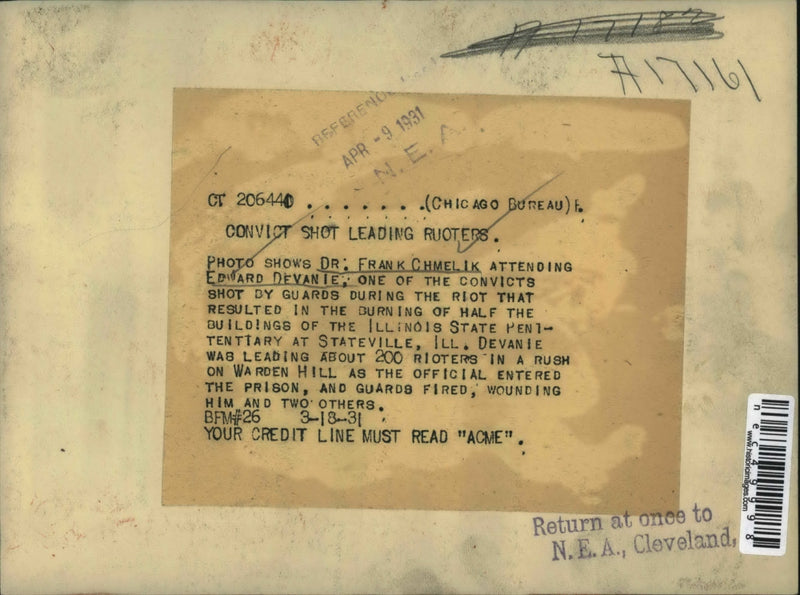 A17182
A17161
REFERENCE
APR -9 1931
N. E. A.
CT 206440 . . . . . . . (CHICAGO BUREAU) F.
CONVICT SHOT LEADING RUOTERS.
PHOTO SHOWS DR. FRANK CHMELIK ATTENDING
EDWARD DEVANIE, ONE OF THE CONVICTS
SHOT BY GUARDS DURING THE RIOT THAT
RESULTED IN THE BURNING OF HALF THE
BUILDINGS OF THE ILLINOIS STATE PENI-
TENTIARY AT STATEVILLE, ILL. DEVANIE
WAS LEADING ABOUT 200 RIOTERS IN A RUSH
ON WARDEN HILL AS THE OFFICIAL ENTERED
THE PRISON, AND GUARDS FIRED, WOUNDING
HIM AND TWO OTHERS.
BFM#26 3-18-31
YOUR CREDIT LINE MUST READ "ACME".
Return at once to
N.E.A., Cleveland,
www.historicimages.com
nec49998